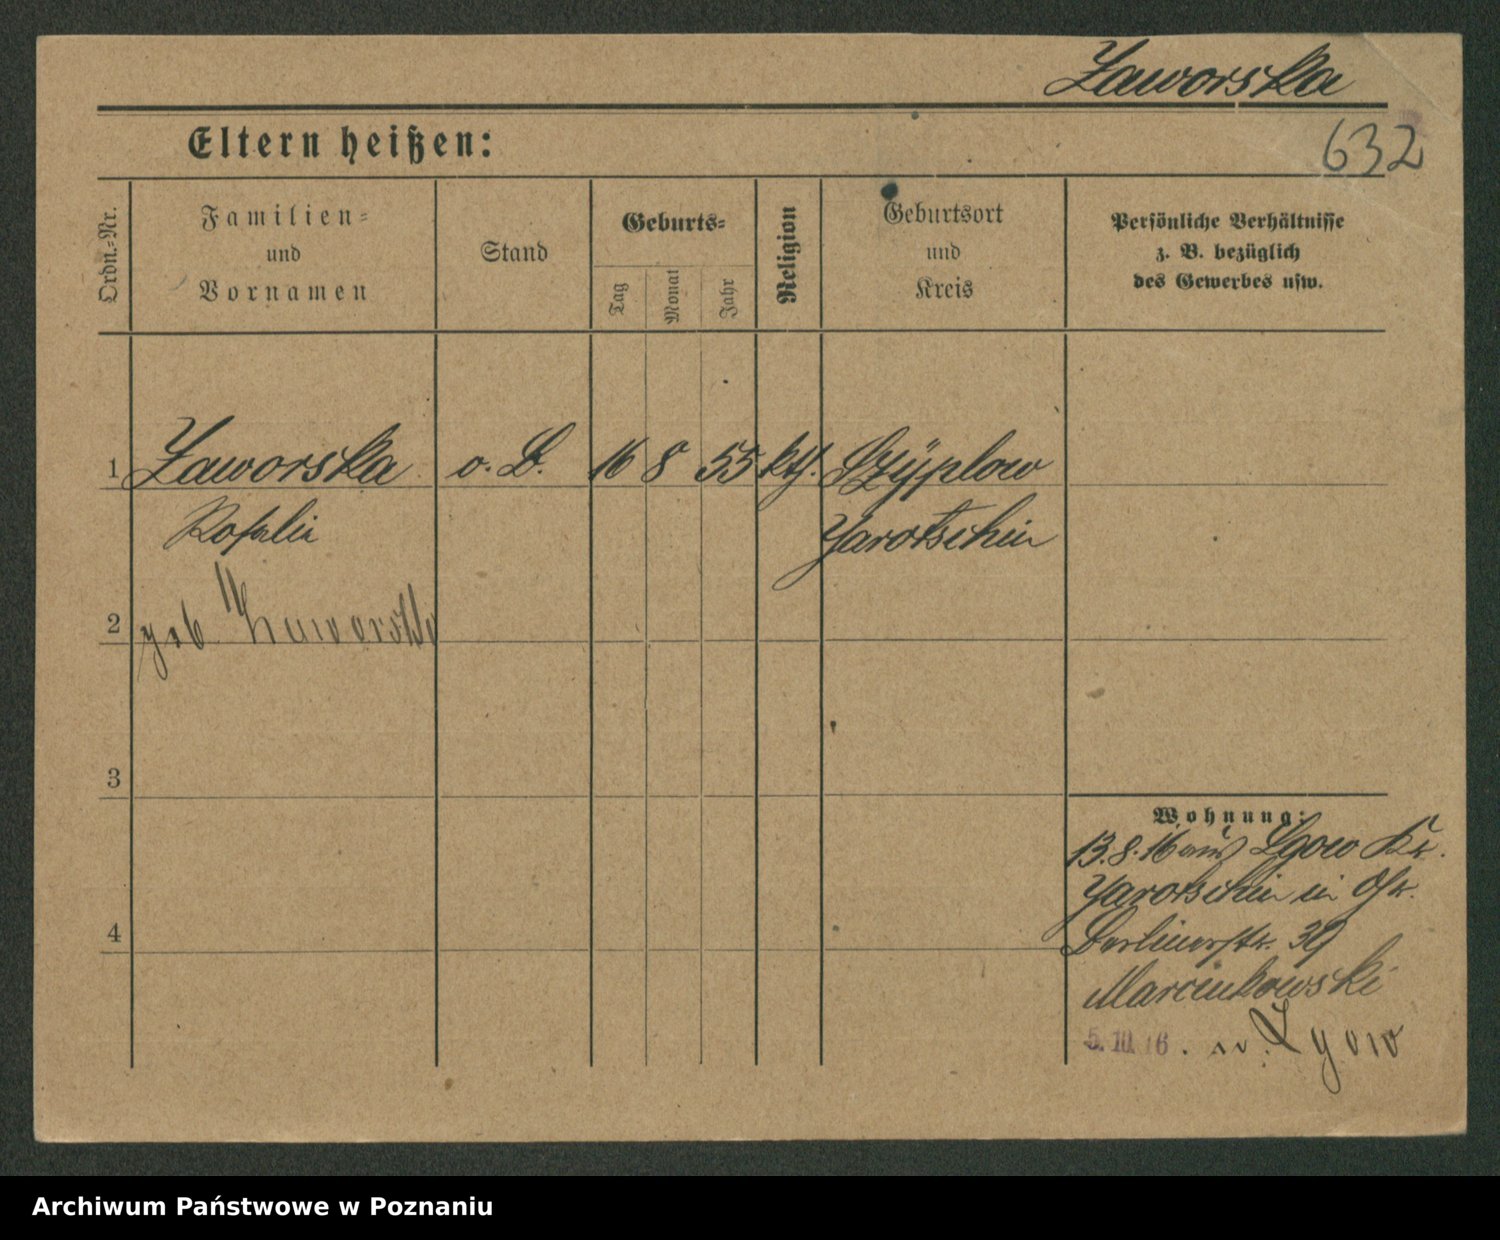 Jaworska
Eltern heißen:
632
Ordn.-Nr.
Familien-
und
Vornamen
Stand
Geburts-
Tag
Monat
Jahr
Religion
Geburtsort
und
Kreis
Persönliche Verhältnisse
z. B. bezüglich
des Gewerbes usw.
1 Jaworska o. B. 16 8 55 kth.
Rosalie Jarotschin
2 geb
3
4
Wohnung:
13.8.16 aus Lgow Kr.
Jarotschin in
Berlinerstr. 39
Marcinkowski
5. 10. 16. Lgow
Archiwum Państwowe w Poznaniu